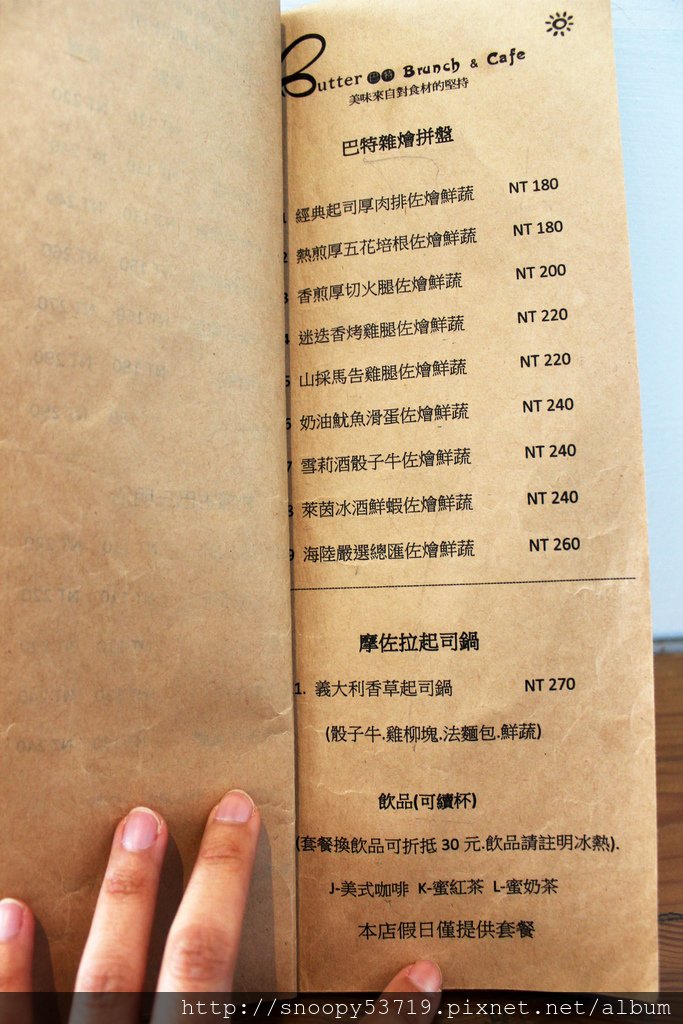 Butter 巴特 Brunch & Cafe
美味來自對食材的堅持
巴特雜燴拼盤
經典起司厚肉排佐燴鮮蔬 NT 180
熱煎厚五花培根佐燴鮮蔬 NT 180
香煎厚切火腿佐燴鮮蔬 NT 200
迷迭香烤雞腿佐燴鮮蔬 NT 220
山採馬告雞腿佐燴鮮蔬 NT 220
奶油魷魚滑蛋佐燴鮮蔬 NT 240
雪莉酒骰子牛佐燴鮮蔬 NT 240
萊茵冰酒鮮蝦佐燴鮮蔬 NT 240
9 海陸嚴選總匯佐燴鮮蔬 NT 260
摩佐拉起司鍋
1. 義大利香草起司鍋 NT 270
(骰子牛.雞柳塊.法麵包.鮮蔬)
飲品(可續杯)
(套餐換飲品可折抵 30 元.飲品請註明冰熱).
J-美式咖啡 K-蜜紅茶 L-蜜奶茶
本店假日僅提供套餐
http://snoopy53719.pixnet.net/album